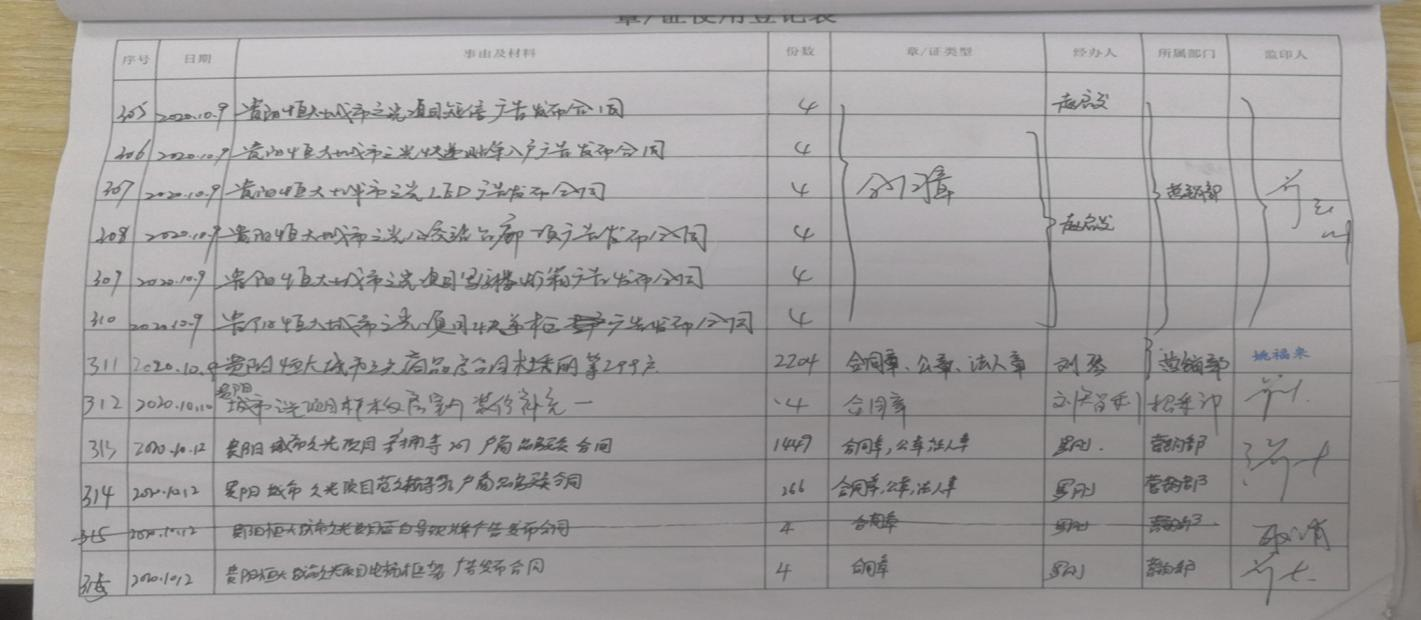 章/证使用登记表
序号 日期 事由及材料 份数 章/证类型 经办人 所属部门 监印人
305 2020.10.9 贵阳恒大城市之光项目短信广告发布合同 4 赵启发
306 2020.10.9 贵阳恒大城市之光快递贴单入户广告发布合同 4
307 2020.10.9 贵阳恒大城市之光LED广告发布合同 4 合同章 营销部
308 2020.10.9 贵阳恒大城市之光公交站台广告发布合同 4 赵启发
309 2020.10.9 贵阳恒大城市之光项目灯箱广告发布合同 4
310 2020.10.9 贵阳恒大城市之光项目快递柜广告发布合同 4
311 2020.10.9 贵阳恒大城市之光商品房合同 等299户 2204 合同章、公章、法人章 刘琴 营销部 姚福来
312 2020.10.10 贵阳城市之光项目 室内装修补充一 4 合同章 招采部
313 2020.10.12 贵阳城市之光项目 等 户商品房买卖合同 1449 合同章,公章,法人章 罗刚 营销部
314 2020.10.12 贵阳城市之光项目 等 户商品房买卖合同 266 合同章,公章,法人章 罗刚 营销部
315 2020.10.12 贵阳恒大城市之光项目 导视牌广告发布合同 4 合同章 罗刚 营销部 取消
315 2020.10.12 贵阳恒大城市之光项目电梯框架广告发布合同 4 合同章 罗刚 营销部